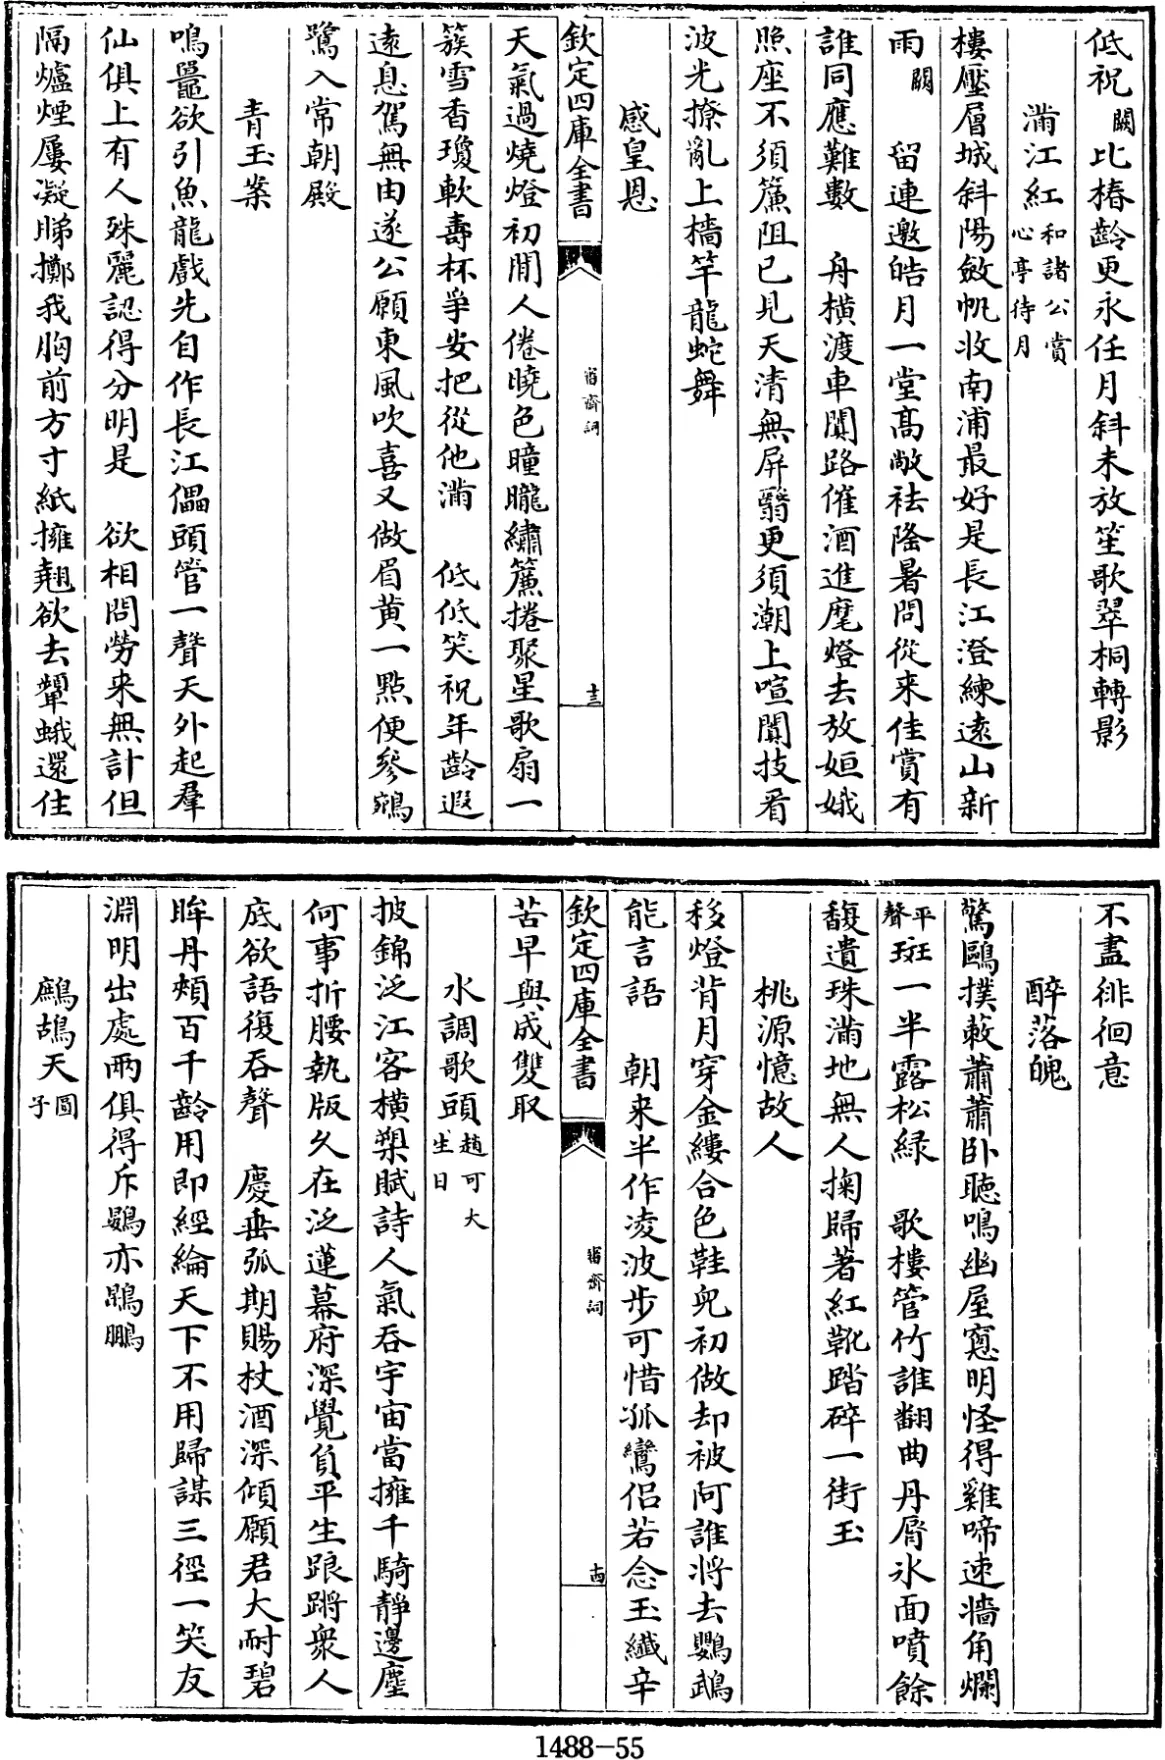 低祝闕比椿齡更永任月斜未放笙歌翠桐轉影
滿江紅和諸公賞心亭待月
樓壓層城斜陽斂帆收南浦最好是長江澄練遠山新
雨闕　留連邀皓月一堂高敞袪隆暑問從來佳賞有
誰同應難數　舟橫渡車闐路催酒進麾燈去放姮娥
照座不須簾阻已見天清無屏翳更須潮上喧闐技看
波光撩亂上檣竿龍蛇舞
感皇恩
欽定四庫全書　審齋詞　十三
天氣過燒燈初閒人倦曉色曈曨繡簾捲聚星歌扇一
簇雪香瓊軟壽杯爭安把從他滿　低低笑祝年齡遐
遠息駕無由遂公願東風吹喜又做眉黃一點便參鵷
鷺入常朝殿
青玉案
鳴鼉欲引魚龍戲先自作長江傷頭管一聲天外起羣
仙俱上有人殊麗認得分明是　欲相問勞來無計但
隔爐煙屢凝睇擲我胸前方寸紙擁翹欲去顰蛾還住
不盡徘徊意
醉落魄
驚鷗撲蔌蕭蕭卧聽鳴幽屋窻明怪得雞啼速墻角爛
平聲斑一半露松綠　歌樓管竹誰翻曲丹脣氷面噴餘
馥遺珠滿地無人掬歸著紅靴踏碎一街玉
桃源憶故人
移燈背月穿金縷合色鞋兒初做却被阿誰將去鸚鵡
能言語　朝來半作凌波步可惜孤鸞侶若念玉纖辛
欽定四庫全書　審齋詞　十四
苦早與成雙取
水調歌頭趙可大生日
披錦泛江客橫槊賦詩人氣吞宇宙當擁千騎靜邊塵
何事折腰執版久在泛蓮幕府深覺負平生踉蹡衆人
底欲語復吞聲　慶垂弧期賜杖酒深傾願君大耐碧
眸丹頰百千齡用即經綸天下不用歸謀三徑一笑友
淵明出處兩俱得斥鷃亦鵾鵬
鷓鴣天圓子
1488-55